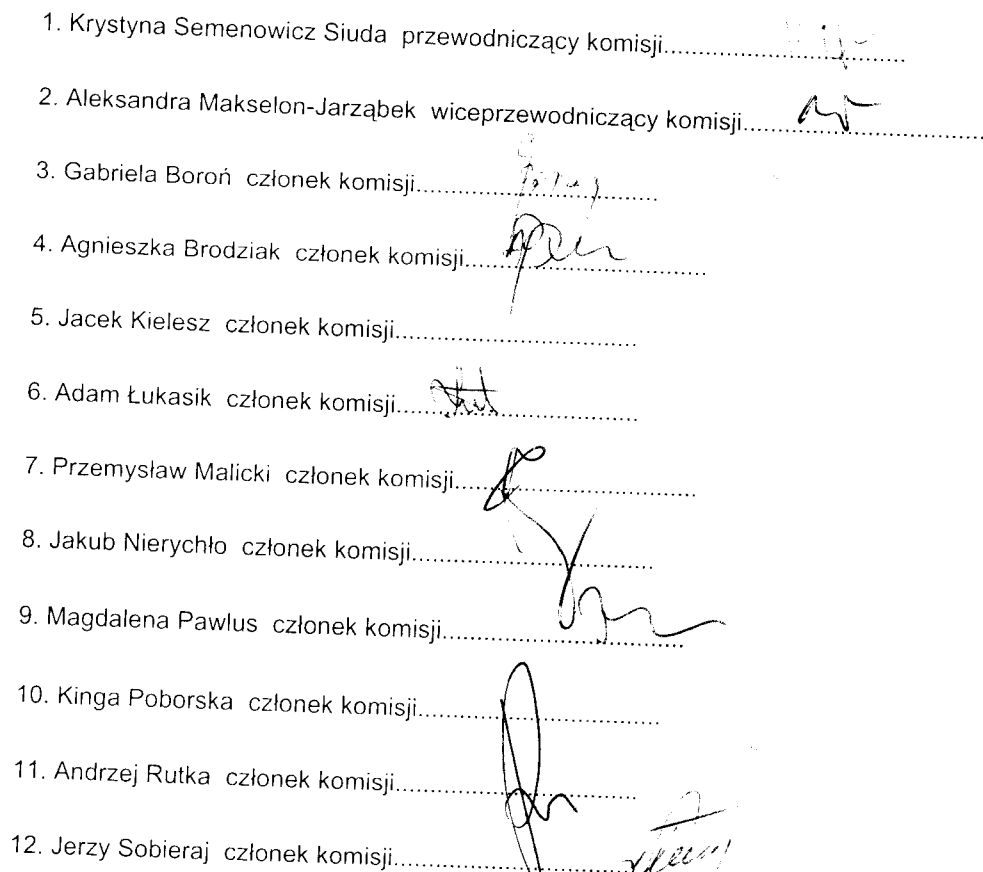 1. Krystyna Semenowicz Siuda przewodniczący komisji....................................
2. Aleksandra Makselon-Jarząbek wiceprzewodniczący komisji....................................
3. Gabriela Boroń członek komisji....................................
4. Agnieszka Brodziak członek komisji....................................
5. Jacek Kielesz członek komisji....................................
6. Adam Łukasik członek komisji....................................
7. Przemysław Malicki członek komisji....................................
8. Jakub Nierychło członek komisji....................................
9. Magdalena Pawlus członek komisji....................................
10. Kinga Poborska członek komisji....................................
11. Andrzej Rutka członek komisji....................................
12. Jerzy Sobieraj członek komisji....................................